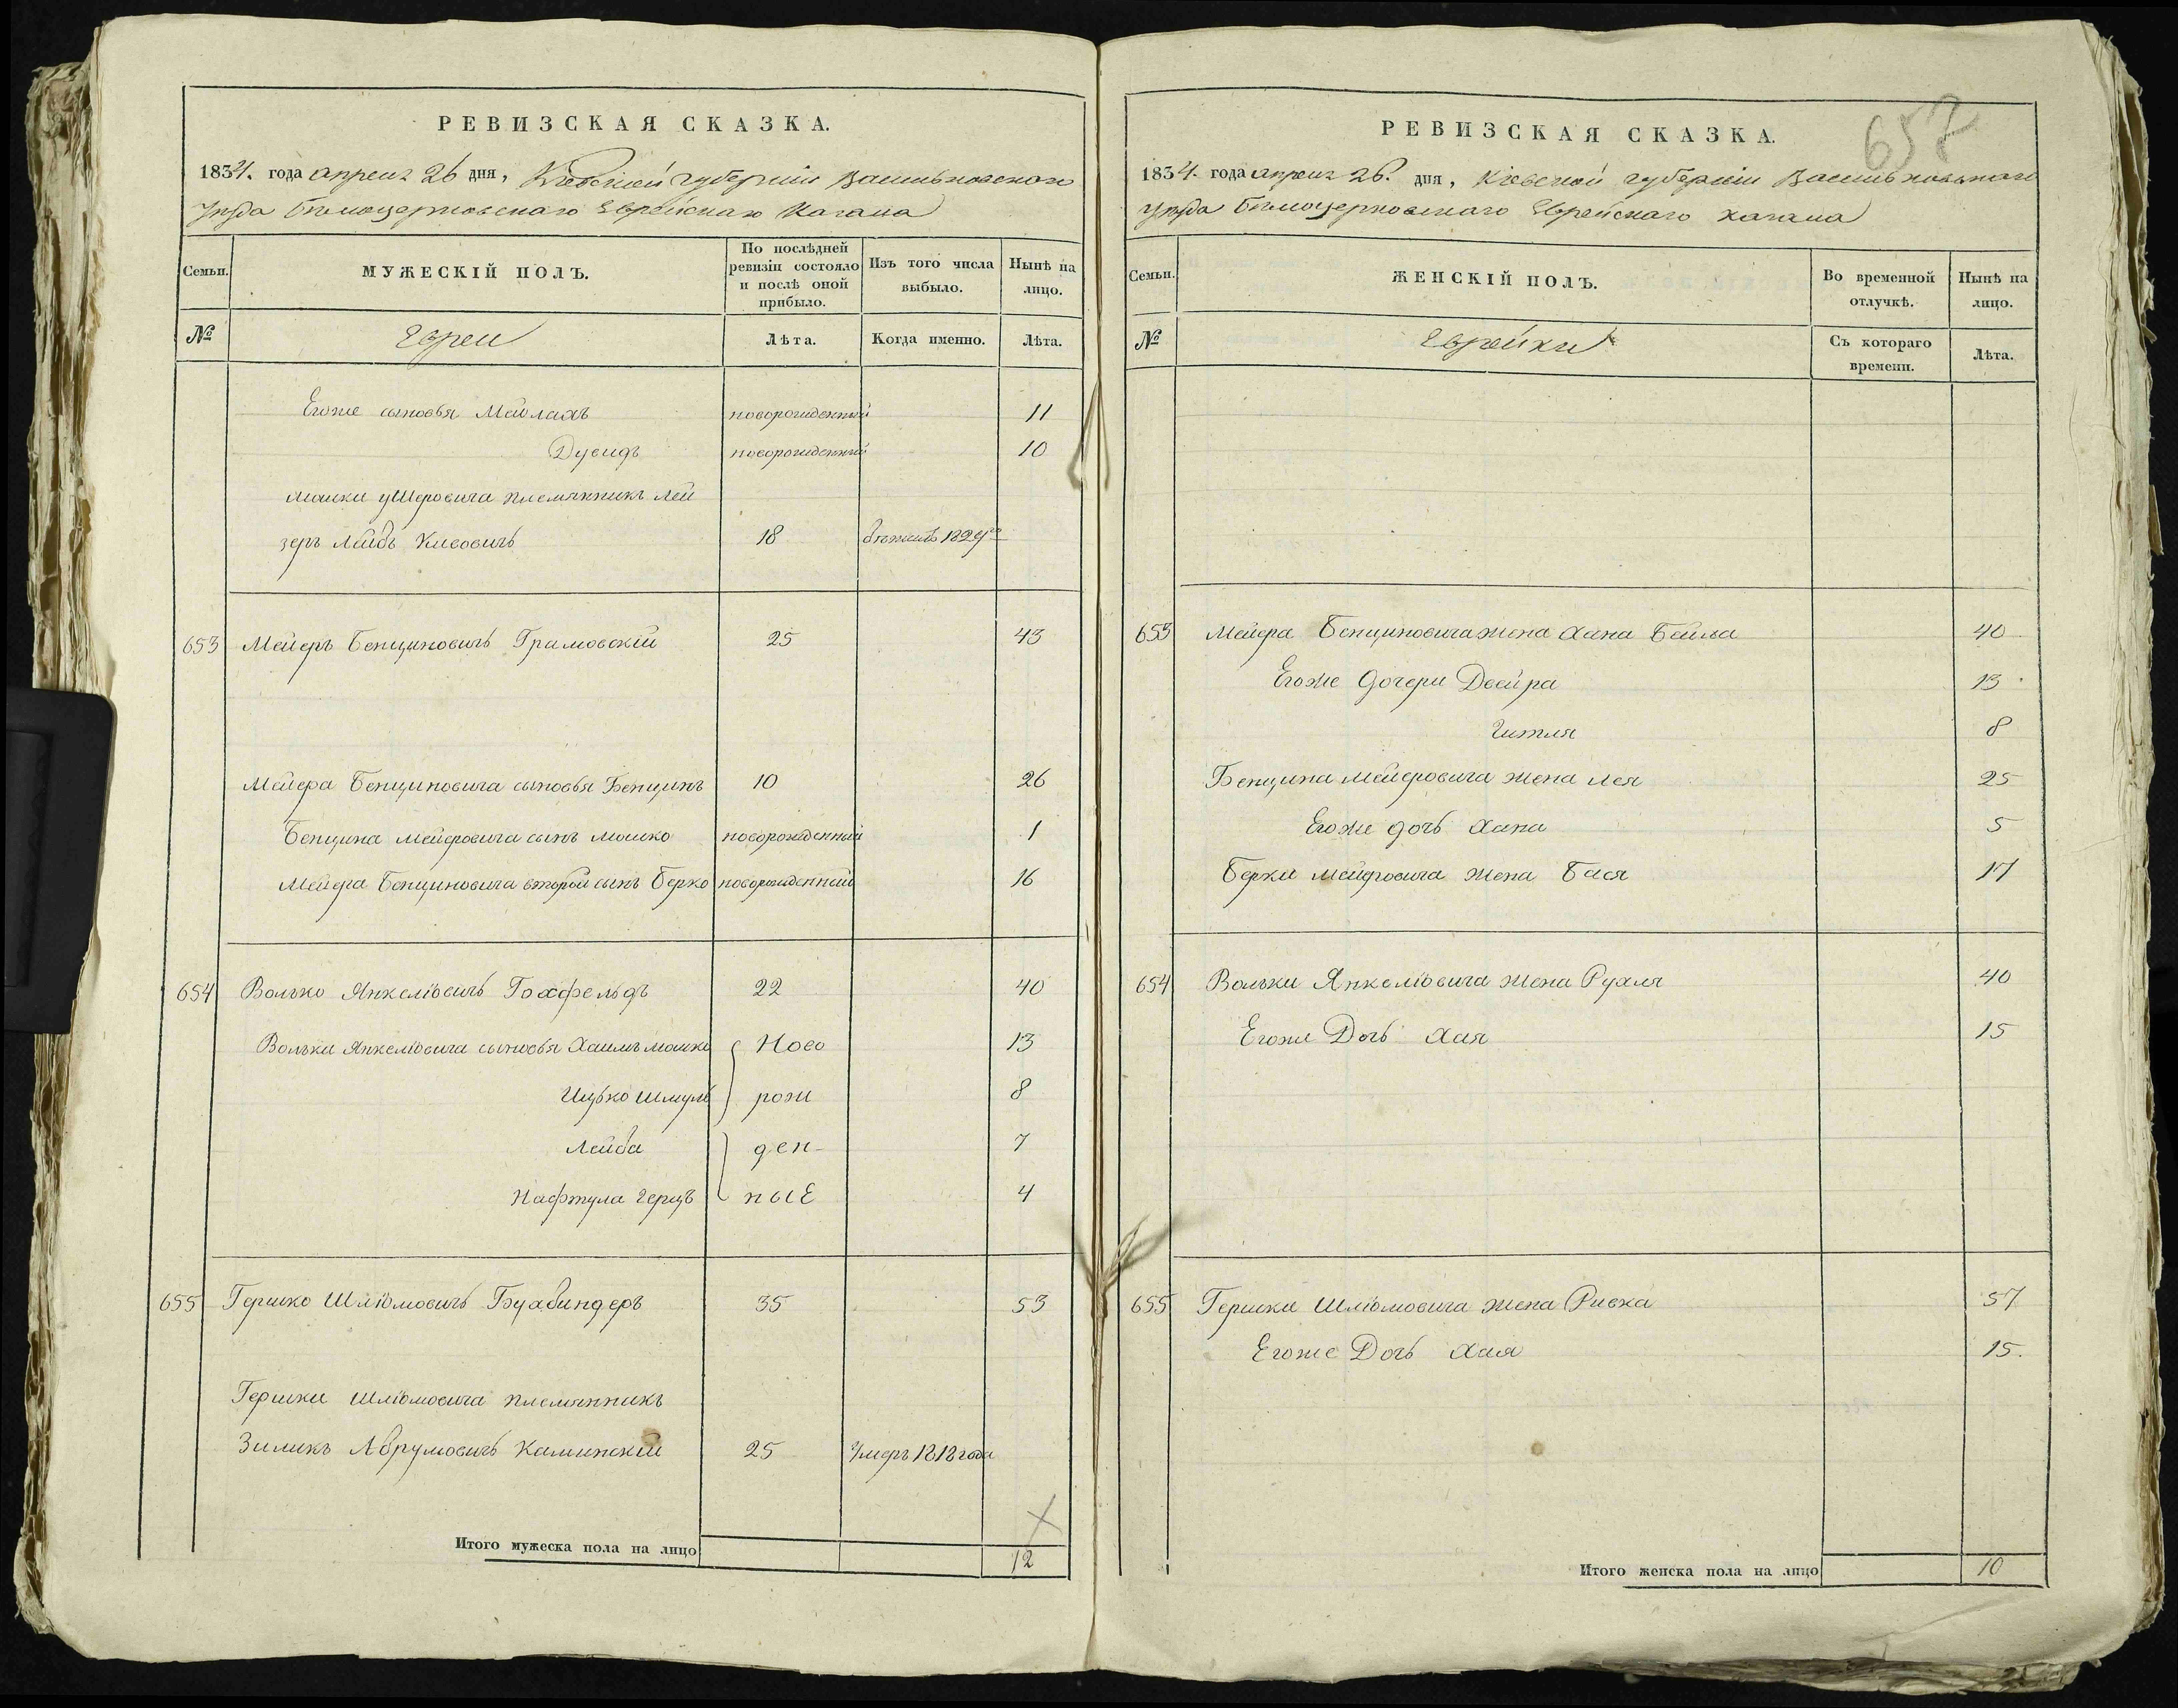 РЕВИЗСКАЯ СКАЗКА.
1834. года апреля 26 дня, Кіевской губерніи Васильковскаго
уѣзда Бѣлоцерковскаго Еврейскаго Кагала
Семьи.
МУЖЕСКІЙ ПОЛЪ.
По послѣдней ревизіи состояло и послѣ оной прибыло.
Изъ того числа выбыло.
Нынѣ на лицо.
№
Евреи
Лѣта.
Когда именно.
Лѣта.
Егоже сыновья Мейлахъ новорожденный 11
Дувидъ новорожденный 10
Мошки уШеровича племянникъ Лей
зеръ Лейбъ Кивовичъ 18 бѣжалъ 1829го
653 Мейеръ Бенционовичъ Грамовскій 25 43
Мейера Бенциновича сыновья Бенцинъ 10 26
Бенцина Мейеровича сынъ Мошко новорожденный 1
Мейера Бенциновича второй сынъ Берко новорожденный 16
654 Волько Янкеліовичъ Гохфельдъ 22 40
Вольки Янкеліовича сыновья Хаимъ Мошко Ново 13
Ицько Шмуль рож 8
Лейба ден- 7
Нафтула Герцъ ныЕ 4
655 Гершко Шліомовичъ Бухбиндеръ 35 53
Гершки Шліомовича племянникъ
Зиликъ Абрумовичъ Каминскій 25 Умеръ 1818 года
Итого мужеска пола на лицо 12
657
РЕВИЗСКАЯ СКАЗКА.
1834. года апреля 26. дня, Кіевской губерніи Васильковскаго
уѣзда Бѣлоцерковскаго Еврейскаго кагала
Семьи.
ЖЕНСКІЙ ПОЛЪ.
Во временной отлучкѣ.
Нынѣ на лицо.
№
Еврейки
Съ котораго времени.
Лѣта.
653 Мейера Бенциновича жена Хана Бейла 40
Егоже дочери Двейра 13
Гитля 8
Бенцина Мейеровича жена Лея 25
Егоже дочь Хана 5
Берки Мейеровича жена Бася 17
654 Вольки Янкеліовича жена Рухля 40
Егоже Дочь Хая 15
655 Гершки Шліомовича жена Ривка 57
Егоже Дочь Хая 15.
Итого женска пола на лицо 10